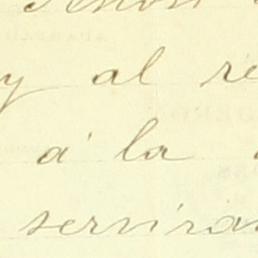 y al re
á la
servira